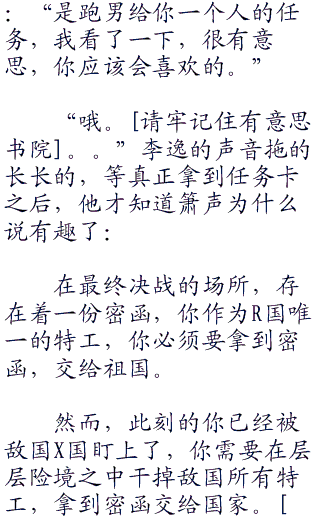 ：“是跑男给你一个人的任
务，我看了一下，很有意
思，你应该会喜欢的。”
“哦。[请牢记住有意思
书院]。。”李逸的声音拖的
长长的，等真正拿到任务卡
之后，他才知道箫声为什么
说有趣了：
在最终决战的场所，存
在着一份密函，你作为R国唯
一的特工，你必须要拿到密
函，交给祖国。
然而，此刻的你已经被
敌国X国盯上了，你需要在层
层险境之中干掉敌国所有特
工，拿到密函交给国家。[